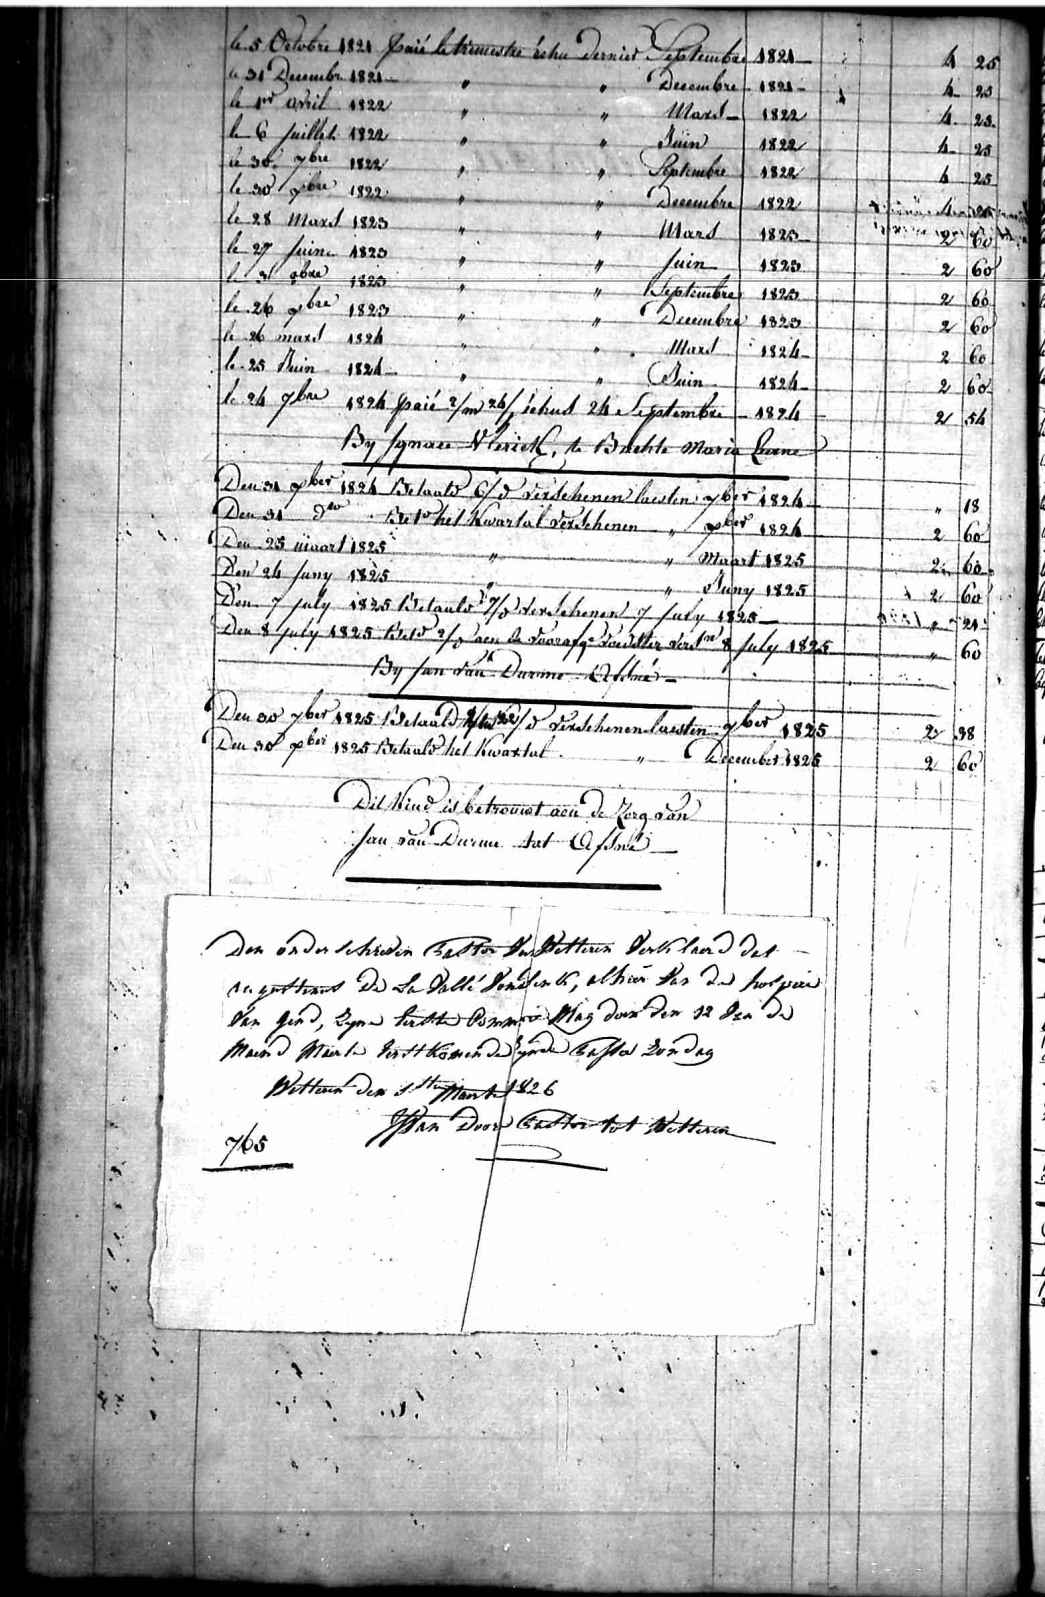 le 5 Octobre 1821 Payé le trimestre échu dernier Septembre 1821 4 25
le 31 Decembr 1821 " " Decembre 1821 4 25
le 1er avril 1822 " " Mars 1822 4 25
le 6 Juillet 1822 " " Juin 1822 4 25
le 30 7bre 1822 " " Septembre 1822 4 25
le 30 bre 1822 " " Decembre 1822 4 25
le 28 Mars 1823 " " Mars 1823 2 60
le 27 Juin 1823 " " Juin 1823 2 60
le 31 bre 1823 " " Septembre 1823 2 60
le 26 bre 1823 " " Decembre 1823 2 60
le 26 mars 1824 " " Mars 1824 2 60
le 25 Juin 1824 " " Juin 1824 2 60
le 24 7bre 1824 Payé 2/m 24/ échus 24 Septembre 1824 2 54
By Ignace Vlerick, te Maria Leerne
Den 31 ber 1824 Betaald 6/d verschenen laesten 7ber 1824 " 18
Den 31 do Bet. het Kwartal verschenen " ber 1824 2 60
Den 25 maart 1825 " " Maart 1825 2 60
Den 24 Juny 1825 " " Juny 1825 2 60
Den 7 July 1825 Betaald 7/d verschenen 7 July 1825 " 21
Den 8 July 1825 aen de 8 July 1825 " 60
By Jan van Durme Afsné
Den 30 7ber 1825 Betaald 22/d verschenen laesten 7ber 1825 2 38
Den 30 ber 1825 Betaald het Kwartal " December 1825 2 60
Dit Kind is betrouwt aen de Zorg van
Jan van Durme tot Afsné
Den onderschreven Pastor van Wetteren Verklaerd dat
augustinus De La Vallé Vondlenk, alhier van de hospice
van Gend, Zyne Eerste Commnie Mag doen den 12 Van de
Maend Maerte Eerstkomende Zynde Passie Zondag
Wetteren den Maerte 1826
Van Door Pastor tot Wetteren
765